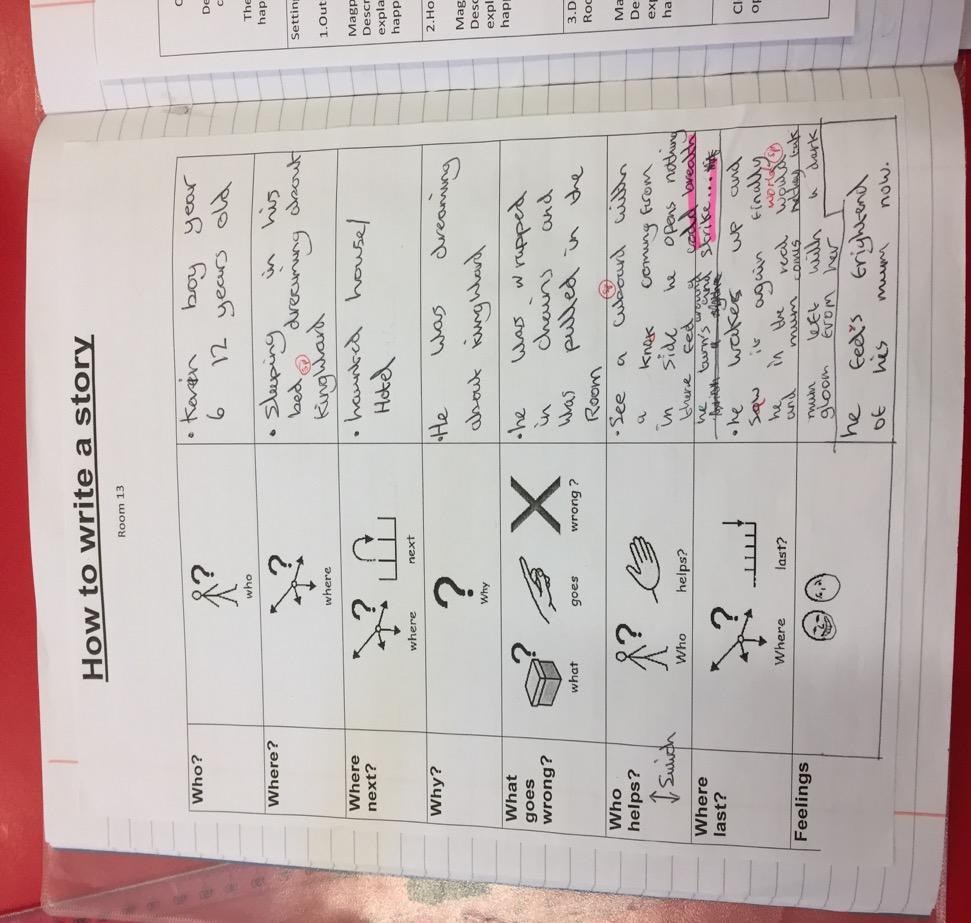 How to write a story
Room 13
Who?
who
• Kevin boy year
6 12 years old
Where?
where
• Sleeping in his
bed dreaming about
sp
Kinghard
Where
next?
where
next
• haunted house/
Hotel
Why?
Why
• He was dreaming
about kinghard
What
goes
wrong?
what
goes
wrong?
• he was wrapped
in chains and
was pulled in the
Room
Who
helps?
↓ Swich
Who
helps?
• See a cuboard within
sp
a knok coming from
in side he opens nothing
there feel a cold breath
he turns around and strike....
Where
last?
Where
last?
• he wakes up and
saw it again finally
he in the real world
sp
and mum comes
mum left with a dark
gloom from her
Feelings
he feels frightend
of his mum now.
Setting
1.Out
Magp
Descr
explai
happ
2.Ho
Mag
Desc
expl
hap
3.D
Roo
Ma
De
exp
ha
Cl
op
The
hap